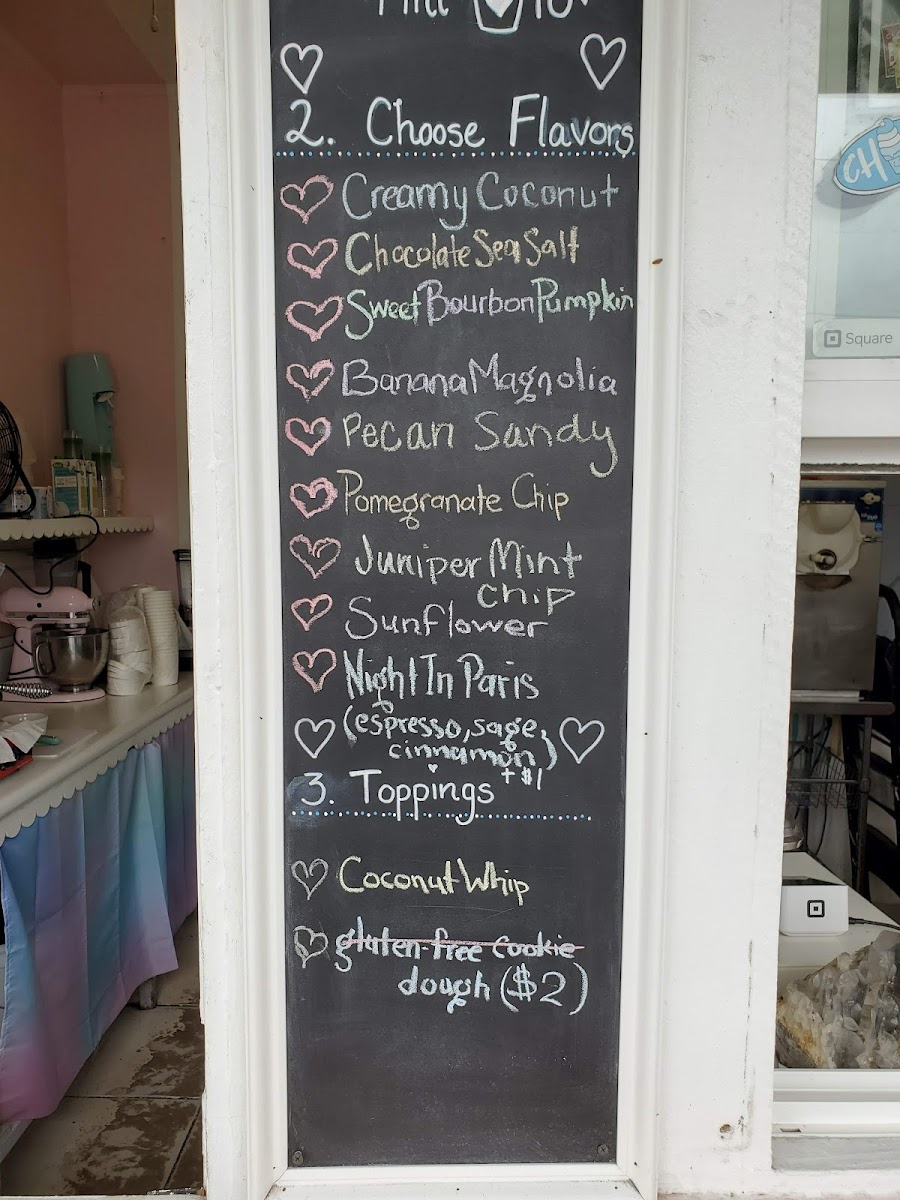 2. Choose Flavors
Creamy Coconut
Chocolate Sea Salt
Sweet Bourbon Pumpkin
Banana Magnolia
Pecan Sandy
Pomegranate Chip
Juniper Mint
Chip
Sunflower
Night In Paris
(espresso, sage,
cinnamon)
3. Toppings +$1
Coconut Whip
gluten-free cookie
dough ($2)
CH
Square